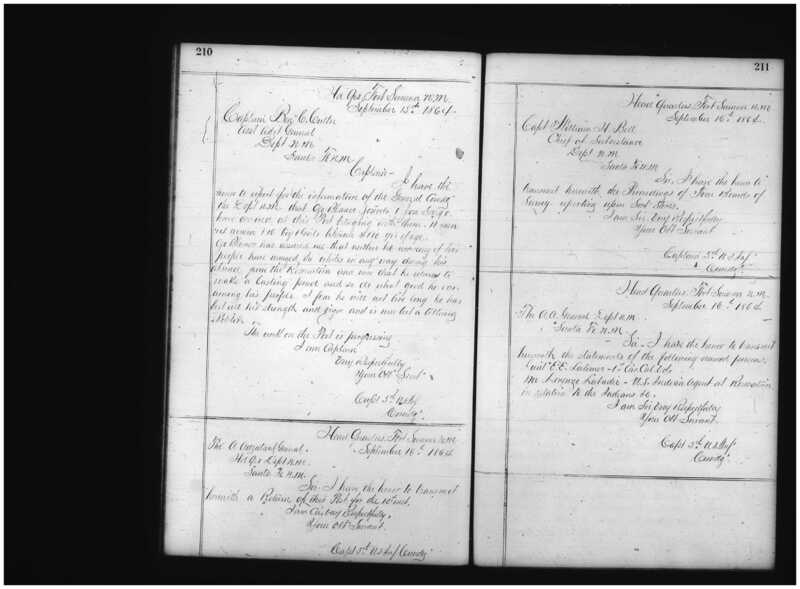 210
Hd Qrs, Fort Sumner N.M.
September 15th 1864.
Captain Ben C. Cutler
Asst Adjt General
Dept N.M.
Santa Fe N.M.
Captain - I have the
honor to report for the information of the General Comdg
the Dept N.M. that
have arrived at this Post bringing with them
boys
has assured me that neither he nor any of his
people have annoyed the whites in any way during his
absence from the Reservation and now that he intends to
make a lasting peace and so do what good he can
among his people. I fear he will not live long he has
lost all his strength and vigor and is now but a tottering
The work on the Post is progressing
I am Captain
Very Respectfully
Your Obt Servt
Capt 5th U.S. Inf
Comdg.
Head Quarters, Fort Sumner N.M.
September 16th 1864
The A. Assistant General.
Hd Qrs Dept N.M.
Santa Fe N.M.
Sir. I have the honor to transmit
herewith a Return of this Post for the 10th inst.
I am Sir very Respectfully.
Your Obt Servant.
Capt 5th U.S Inf Comdg
211
Head Quarters Fort Sumner N.M
September 16th 1864.
Capt William H. Bell
Chief of Subsistence
Dept N.M.
Santa Fe N.M.
Sir, I have the honor to
transmit herewith the Proceedings of Four Boards of
Survey reporting upon Subt Stores.
I am Sir, Very Respectfully
Your Obt Servant
Captain 5th U.S Inf
Comdg.
Head Quarters, Fort Sumner N.M.
September 16th 1864
The A.A. General Dept N.M.
Santa Fe N.M.
Sir - I have the honor to transmit
herewith the statements of the following named persons.
Lieut E.E. Latimer - 1st Cav Cal Vols
Mr Lorenzo Labadie - U.S. Indian Agent at Reservation
in relation to the Indians &c.
I am Sir, Very Respectfully
Your Obt Servant.
Capt 5th U.S Inf
Comdg